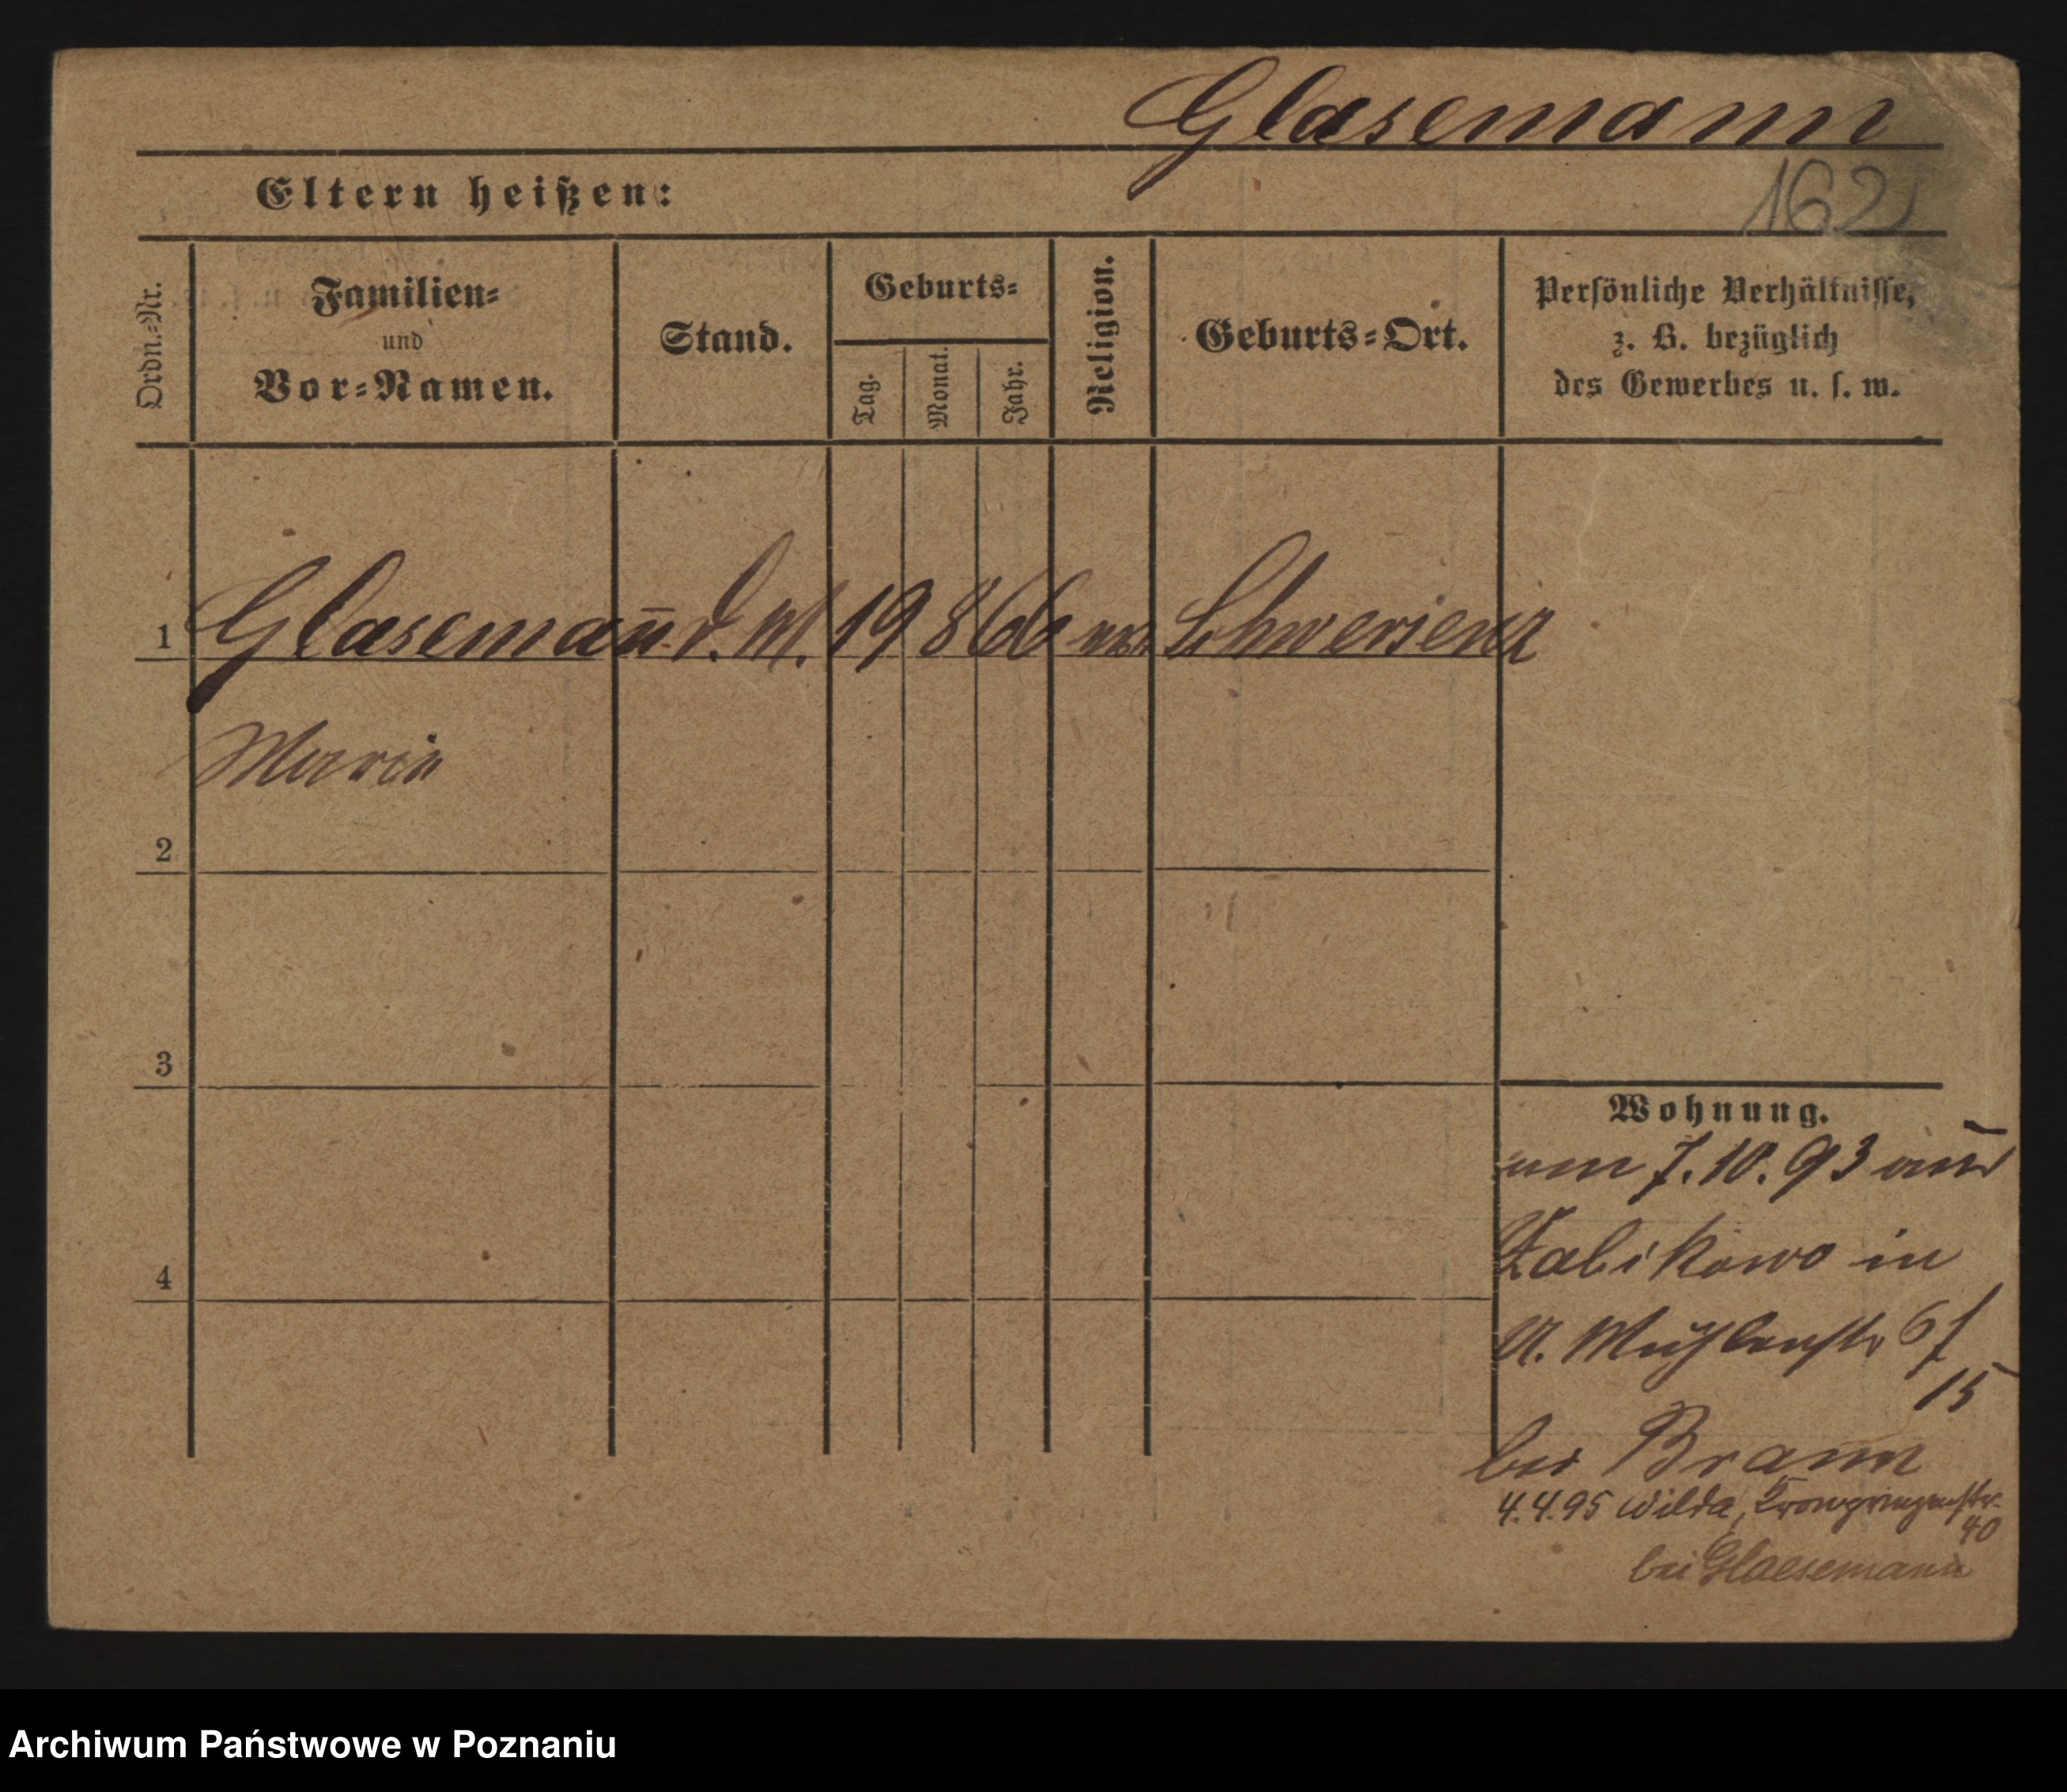 Glasemann
162
Eltern heißen:
Ordn.-Nr.
Familien-
und
Vor-Namen.
Stand.
Geburts-
Tag.
Monat.
Jahr.
Religion.
Geburts-Ort.
Persönliche Verhältnisse,
z. B. bezüglich
des Gewerbes u. s. w.
1 Glasemañ d. M. 19 8 66 Schwersenz
Marie
2
3
4
Wohnung.
am 7.10.93 aus
Zabikowo in
U. Mühlenstr 6
15
bei Brann
4.4.95 Wilda, Kronprinzenstr.
40
bei Glaesemann
Archiwum Państwowe w Poznaniu